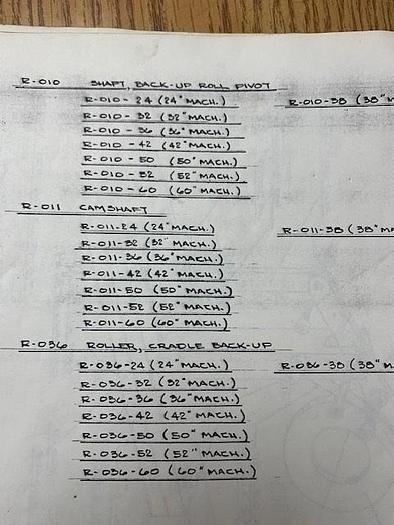 R-010 SHAFT, BACK-UP ROLL PIVOT
R-010-24 (24" MACH.) R-010-38 (38" M
R-010-32 (32" MACH.)
R-010-36 (36" MACH.)
R-010-42 (42" MACH.)
R-010-50 (50" MACH.)
R-010-52 (52" MACH.)
R-010-60 (60" MACH.)
R-011 CAMSHAFT
R-011-24 (24" MACH.) R-011-38 (38" MA
R-011-32 (32" MACH.)
R-011-36 (36" MACH.)
R-011-42 (42" MACH.)
R-011-50 (50" MACH.)
R-011-52 (52" MACH.)
R-011-60 (60" MACH.)
R-036 ROLLER, CRADLE BACK-UP
R-036-24 (24" MACH.) R-036-38 (38" M
R-036-32 (32" MACH.)
R-036-36 (36" MACH.)
R-036-42 (42" MACH.)
R-036-50 (50" MACH.)
R-036-52 (52" MACH.)
R-036-60 (60" MACH.)